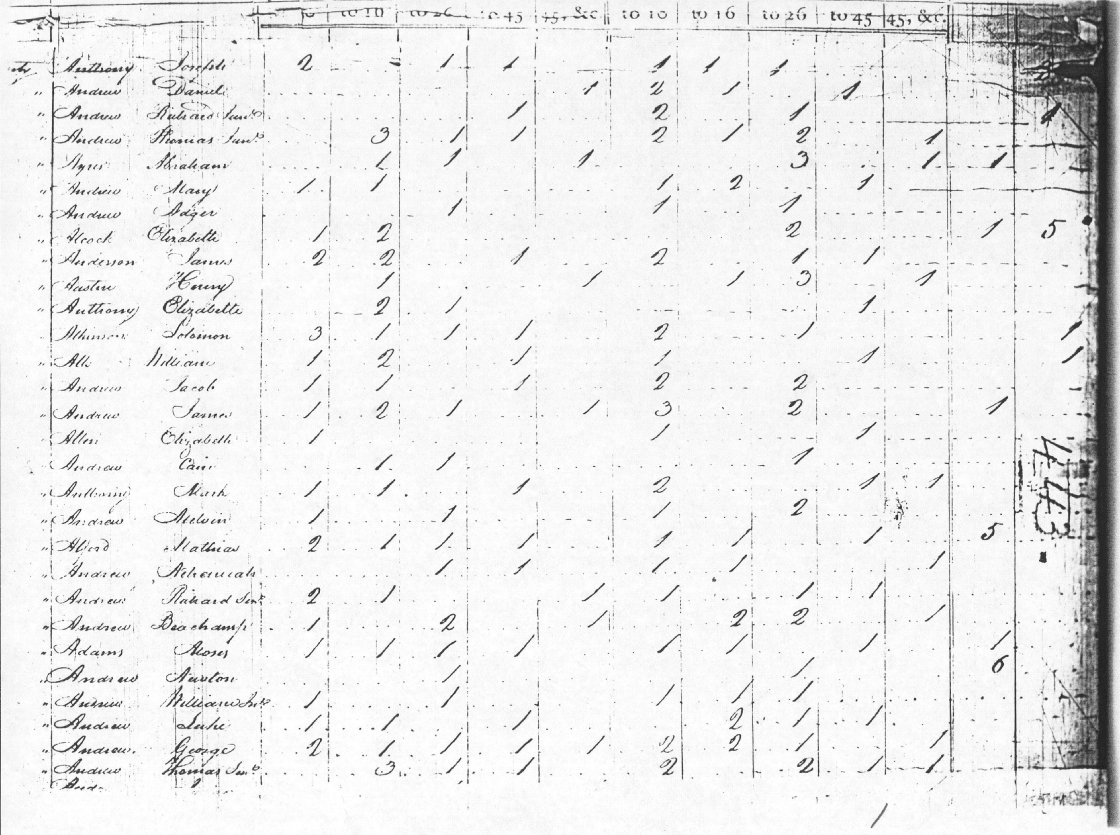 to 10 to 26 to 45 45, &c. to 10 to 16 to 26 to 45 45, &c.
Anthony Joseph 2 1 1 1 1 1
" Andrew Daniel 1 2 1 1
" Andrew Richard Junr 1 2 1 1
" Andrew Thomas Junr 3 1 1 2 1 2 1
" Ayres Abraham 1 1 1 3 1 1
" Andrew Mary 1 1 1 2 1
" Andrew 1 1 1
" Alcock Elizabeth 1 2 2 1 5
" Anderson James 2 2 1 2 1 1
" Austin Henry 1 1 1 3 1
" Anthony Elizabeth 2 1 1
" Atkinson Solomon 3 1 1 1 2 1 1
" William 1 2 1 1 1 1
" Andrew Jacob 1 1 1 2 2
" Andrew James 1 2 1 1 3 2 1
" Allen Elizabeth 1 1 1
" Andrew 1 1 1
" Anthony Mark 1 1 1 2 1 1
" Andrew 1 1 1 2
" Mathias 2 1 1 1 1 1 1 5
" Andrew Nehemiah 1 1 1 1 1
" Andrew Richard Senr 2 1 1 1 1 1
" Andrew Beachamp 1 2 1 2 2 1
" Adams Moses 1 1 1 1 1 1 1 1
" Andrew Newton 1 1 6
" Andrew William 1 1 1 1 1
" Andrew Luke 1 1 1 2 1 1
" Andrew George 2 1 1 1 1 2 2 1 1
" Andrew Thomas 3 1 1 2 2 1 1
443
1